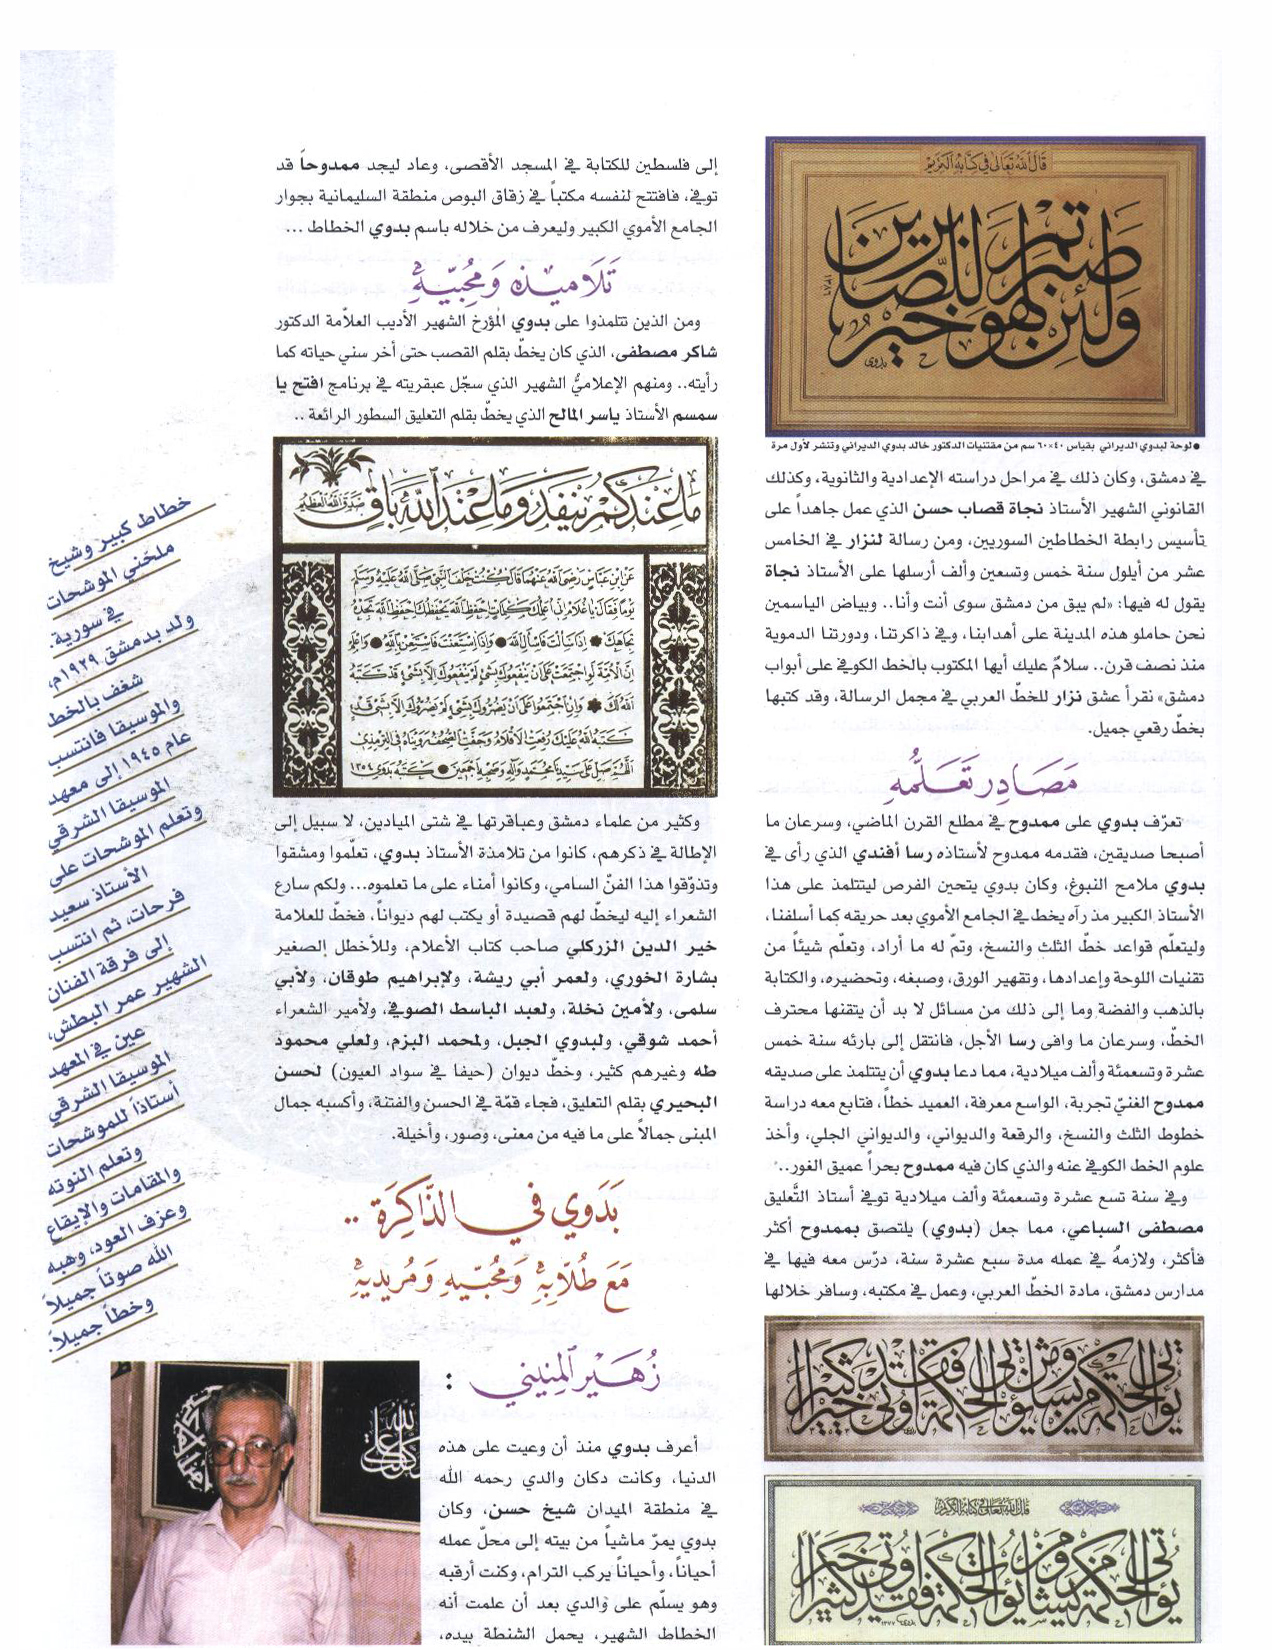 قال الله تعالى في كتابه العزيز
ولئن صبرتم لهو خير للصابرين
بدوي
● لوحة لبدوي الديراني بقياس ٤٠×٦٠ سم من مقتنيات الدكتور خالد بدوي الديراني وتنشر لأول مرة
في دمشق، وكان ذلك في مراحل دراسته الإعدادية والثانوية، وكذلك
القانوني الشهير الأستاذ نجاة قصاب حسن الذي عمل جاهداً على
تأسيس رابطة الخطاطين السوريين، ومن رسالة لنزار في الخامس
عشر من أيلول سنة خمس وتسعين وألف أرسلها على الأستاذ نجاة
يقول له فيها: «لم يبق من دمشق سوى أنت وأنا.. وبياض الياسمين
نحن حاملو هذه المدينة على أهدابنا، وفي ذاكرتنا، ودورتنا الدموية
منذ نصف قرن.. سلامٌ عليك أيها المكتوب بالخط الكوفي على أبواب
دمشق» نقرأ عشق نزار للخطّ العربي في مجمل الرسالة، وقد كتبها
بخطّ رقعي جميل.
مصادر تعلمه
تعرّف بدوي على ممدوح في مطلع القرن الماضي، وسرعان ما
أصبحا صديقين، فقدمه ممدوح لأستاذه رسا أفندي الذي رأى في
بدوي ملامح النبوغ، وكان بدوي يتحين الفرص ليتتلمذ على هذا
الأستاذ الكبير مذ رآه يخط في الجامع الأموي بعد حريقه كما أسلفنا،
وليتعلّم قواعد خطّ الثلث والنسخ، وتمّ له ما أراد، وتعلّم شيئاً من
تقنيات اللوحة وإعدادها، وتقهير الورق، وصبغه، وتحضيره، والكتابة
بالذهب والفضة وما إلى ذلك من مسائل لا بد أن يتقنها محترف
الخطّ، وسرعان ما وافى رسا الأجل، فانتقل إلى بارئه سنة خمس
عشرة وتسعمئة وألف ميلادية، مما دعا بدوي أن يتتلمذ على صديقه
ممدوح الغنيّ تجربة، الواسع معرفة، العميد خطاً، فتابع معه دراسة
خطوط الثلث والنسخ، والرقعة والديواني، والديواني الجلي، وأخذ
علوم الخط الكوفي عنه والذي كان فيه ممدوح بحراً عميق الغور..
وفي سنة تسع عشرة وتسعمئة وألف ميلادية توفي أستاذ التّعليق
مصطفى السباعي، مما جعل (بدوي) يلتصق بممدوح أكثر
فأكثر، ولازمهُ في عمله مدة سبع عشرة سنة، درّس معه فيها في
مدارس دمشق، مادة الخطّ العربي، وعمل في مكتبه، وسافر خلالها
يؤتي الحكمة من يشاء ومن يؤت الحكمة فقد أوتي خيراً كثيراً
قال الله تعالى في كتابه الكريم
يؤتي الحكمة من يشاء ومن يؤت الحكمة فقد أوتي خيراً كثيراً
إلى فلسطين للكتابة في المسجد الأقصى، وعاد ليجد ممدوحاً قد
توفي، فافتتح لنفسه مكتباً في زقاق البوص منطقة السليمانية بجوار
الجامع الأموي الكبير وليعرف من خلاله باسم بدوي الخطاط ...
تلاميذه ومحبيه
ومن الذين تتلمذوا على بدوي المؤرخ الشهير الأديب العلاّمة الدكتور
شاكر مصطفى، الذي كان يخطّ بقلم القصب حتى أخر سني حياته كما
رأيته.. ومنهم الإعلاميُّ الشهير الذي سجّل عبقريته في برنامج افتح يا
سمسم الأستاذ ياسر المالح الذي يخطّ بقلم التعليق السطور الرائعة ..
ما عندكم ينفد وما عند الله باق صدق الله العظيم
عن ابن عباس رضي الله عنهما قال كنت خلف النبي صلى الله عليه وسلم
يوما فقال يا غلام اني أعلمك كلمات احفظ الله يحفظك احفظ الله تجده
تجاهك إذا سألت فاسأل الله وإذا استعنت فاستعن بالله واعلم
ان الأمة لو اجتمعت على أن ينفعوك بشيء لم ينفعوك إلا بشيء قد كتبه
الله لك وإن اجتمعوا على أن يضروك بشيء لم يضروك إلا بشيء قد
كتبه الله عليك رفعت الأقلام وجفت الصحف رويناه في الترمذي
اللهم صل على سيدنا محمد وآله وصحبه أجمعين كتبه بدوي ١٣٥٤
وكثير من علماء دمشق وعباقرتها في شتى الميادين، لا سبيل إلى
الإطالة في ذكرهم، كانوا من تلامذة الأستاذ بدوي، تعلّموا ومشقوا
وتذوّقوا هذا الفنّ السامي، وكانوا أمناء على ما تعلموه... ولكم سارع
الشعراء إليه ليخطّ لهم قصيدة أو يكتب لهم ديواناً، فخطّ للعلامة
خير الدين الزركلي صاحب كتاب الأعلام، وللأخطل الصغير
بشارة الخوري، ولعمر أبي ريشة، ولإبراهيم طوقان، ولأبي
سلمى، ولأمين نخلة، ولعبد الباسط الصوفي، ولأمير الشعراء
أحمد شوقي، ولبدوي الجبل، ولمحمد البزم، ولعلي محمود
طه وغيرهم كثير، وخطّ ديوان (حيفا في سواد العيون) لحسن
البحيري بقلم التعليق، فجاء قمّة في الحسن والفتنة، وأكسبه جمال
المبنى جمالاً على ما فيه من معنى، وصور، وأخيلة.
بدوي في الذاكرة ..
مع طلابه ومحبيه ومريديه
زهير المنيني :
أعرف بدوي منذ أن وعيت على هذه
الدنيا، وكانت دكان والدي رحمه الله
في منطقة الميدان شيخ حسن، وكان
بدوي يمرّ ماشياً من بيته إلى محلّ عمله
أحياناً، وأحياناً يركب الترام، وكنت أرقبه
وهو يسلّم على والدي بعد أن علمت أنه
الخطاط الشهير، يحمل الشنطة بيده،
خطاط كبير وشيخ
ملحّني الموشحات
في سورية.
ولد بدمشق ١٩٢٩م،
شغف بالخط
والموسيقا فانتسب
عام ١٩٤٥ إلى معهد
الموسيقا الشرقي
وتعلم الموشحات على
الأستاذ سعيد
فرحات، ثم انتسب
إلى فرقة الفنان
الشهير عمر البطش،
عين في المعهد
الموسيقا الشرقي
أستاذاً للموشحات
وتعلم النوته
والمقامات والإيقاع
وعزف العود، وهبه
الله صوتاً جميلاً
وخطاً جميلاً.